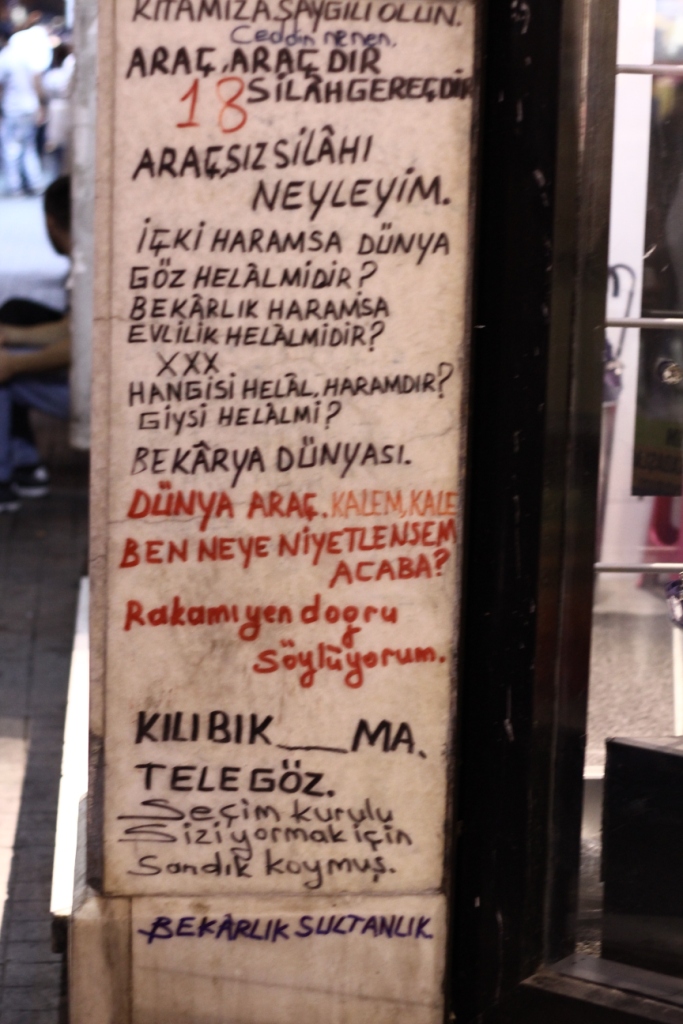 KITAMIZA SAYGILI OLUN.
Ceddin nenen.
ARAÇ, ARAÇDIR
18 SİLÂHGEREÇDİR
ARAÇSIZ SİLÂHI
NEYLEYİM.
İÇKİ HARAMSA DÜNYA
GÖZ HELÂLMİDİR?
BEKÂRLIK HARAMSA
EVLİLİK HELÂLMİDİR?
XXX
HANGİSİ HELÂL, HARAMDIR?
GİYSİ HELÂLMİ?
BEKÂRYA DÜNYASI.
DÜNYA ARAÇ. KALEM, KALE
BEN NEYE NİYETLENSEM
ACABA?
Rakamıyen doğru
söylüyorum.
KILIBIK___MA.
TELE GÖZ.
Seçim kurulu
Sizi yormak için
Sandık koymuş.
BEKÂRLIK SULTANLIK